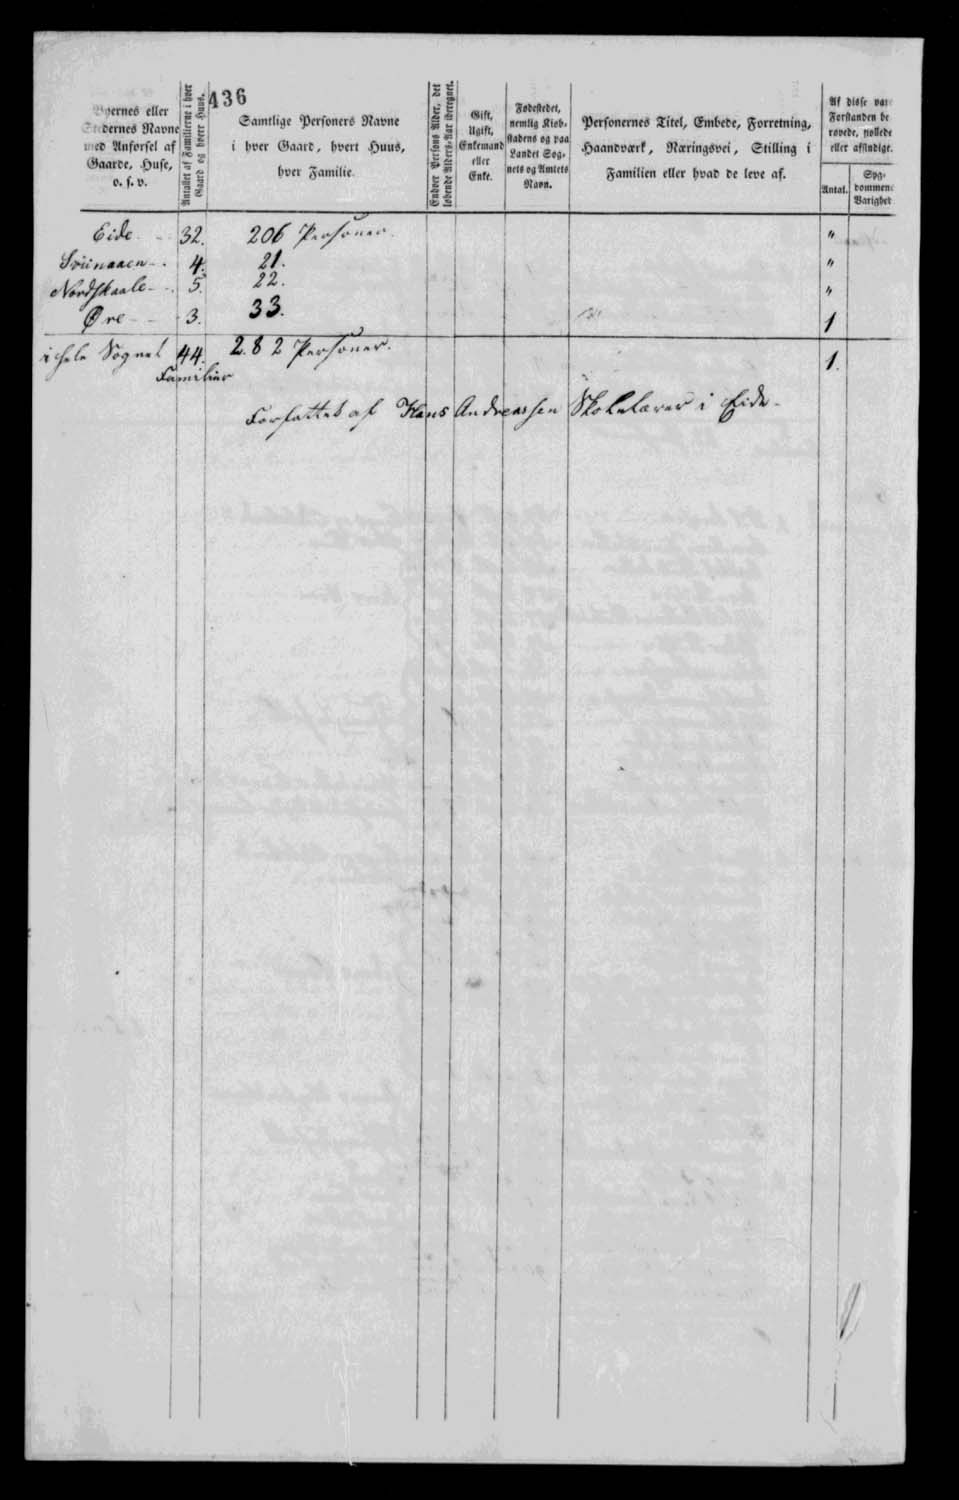 436
Byernes eller
Stedernes Navne
med Anførsel af
Gaarde, Huse,
o. s. v.
Antallet af Familierne i hver
Gaard og hvert Huus.
Samtlige Personers Navne
i hver Gaard, hvert Huus,
hver Familie.
Enhver Persons Alder, det
løbende Alders-Aar iberegnet.
Gift,
Ugift,
Enkemand
eller
Enke.
Fødestedet,
nemlig Kiøb-
stadens og paa
Landet Sog-
nets og Amtets
Navn.
Personernes Titel, Embede, Forretning,
Haandværk, Næringsvei, Stilling i
Familien eller hvad de leve af.
Af disse vare
Forstanden be
røvede, svllede
eller afsindige.
Antal.
Syg-
dommens
Varighed
Eide - - 32. 206 Personer. "
Sviinaaen - . 4. 21. "
Nordskaale - . 5. 22. "
Øre - - 3. 33. 1
i hele Sognet 44. 282 Personer. 1.
Familier
Forfattet af Hans Andreassen Skolelærer i Eide -